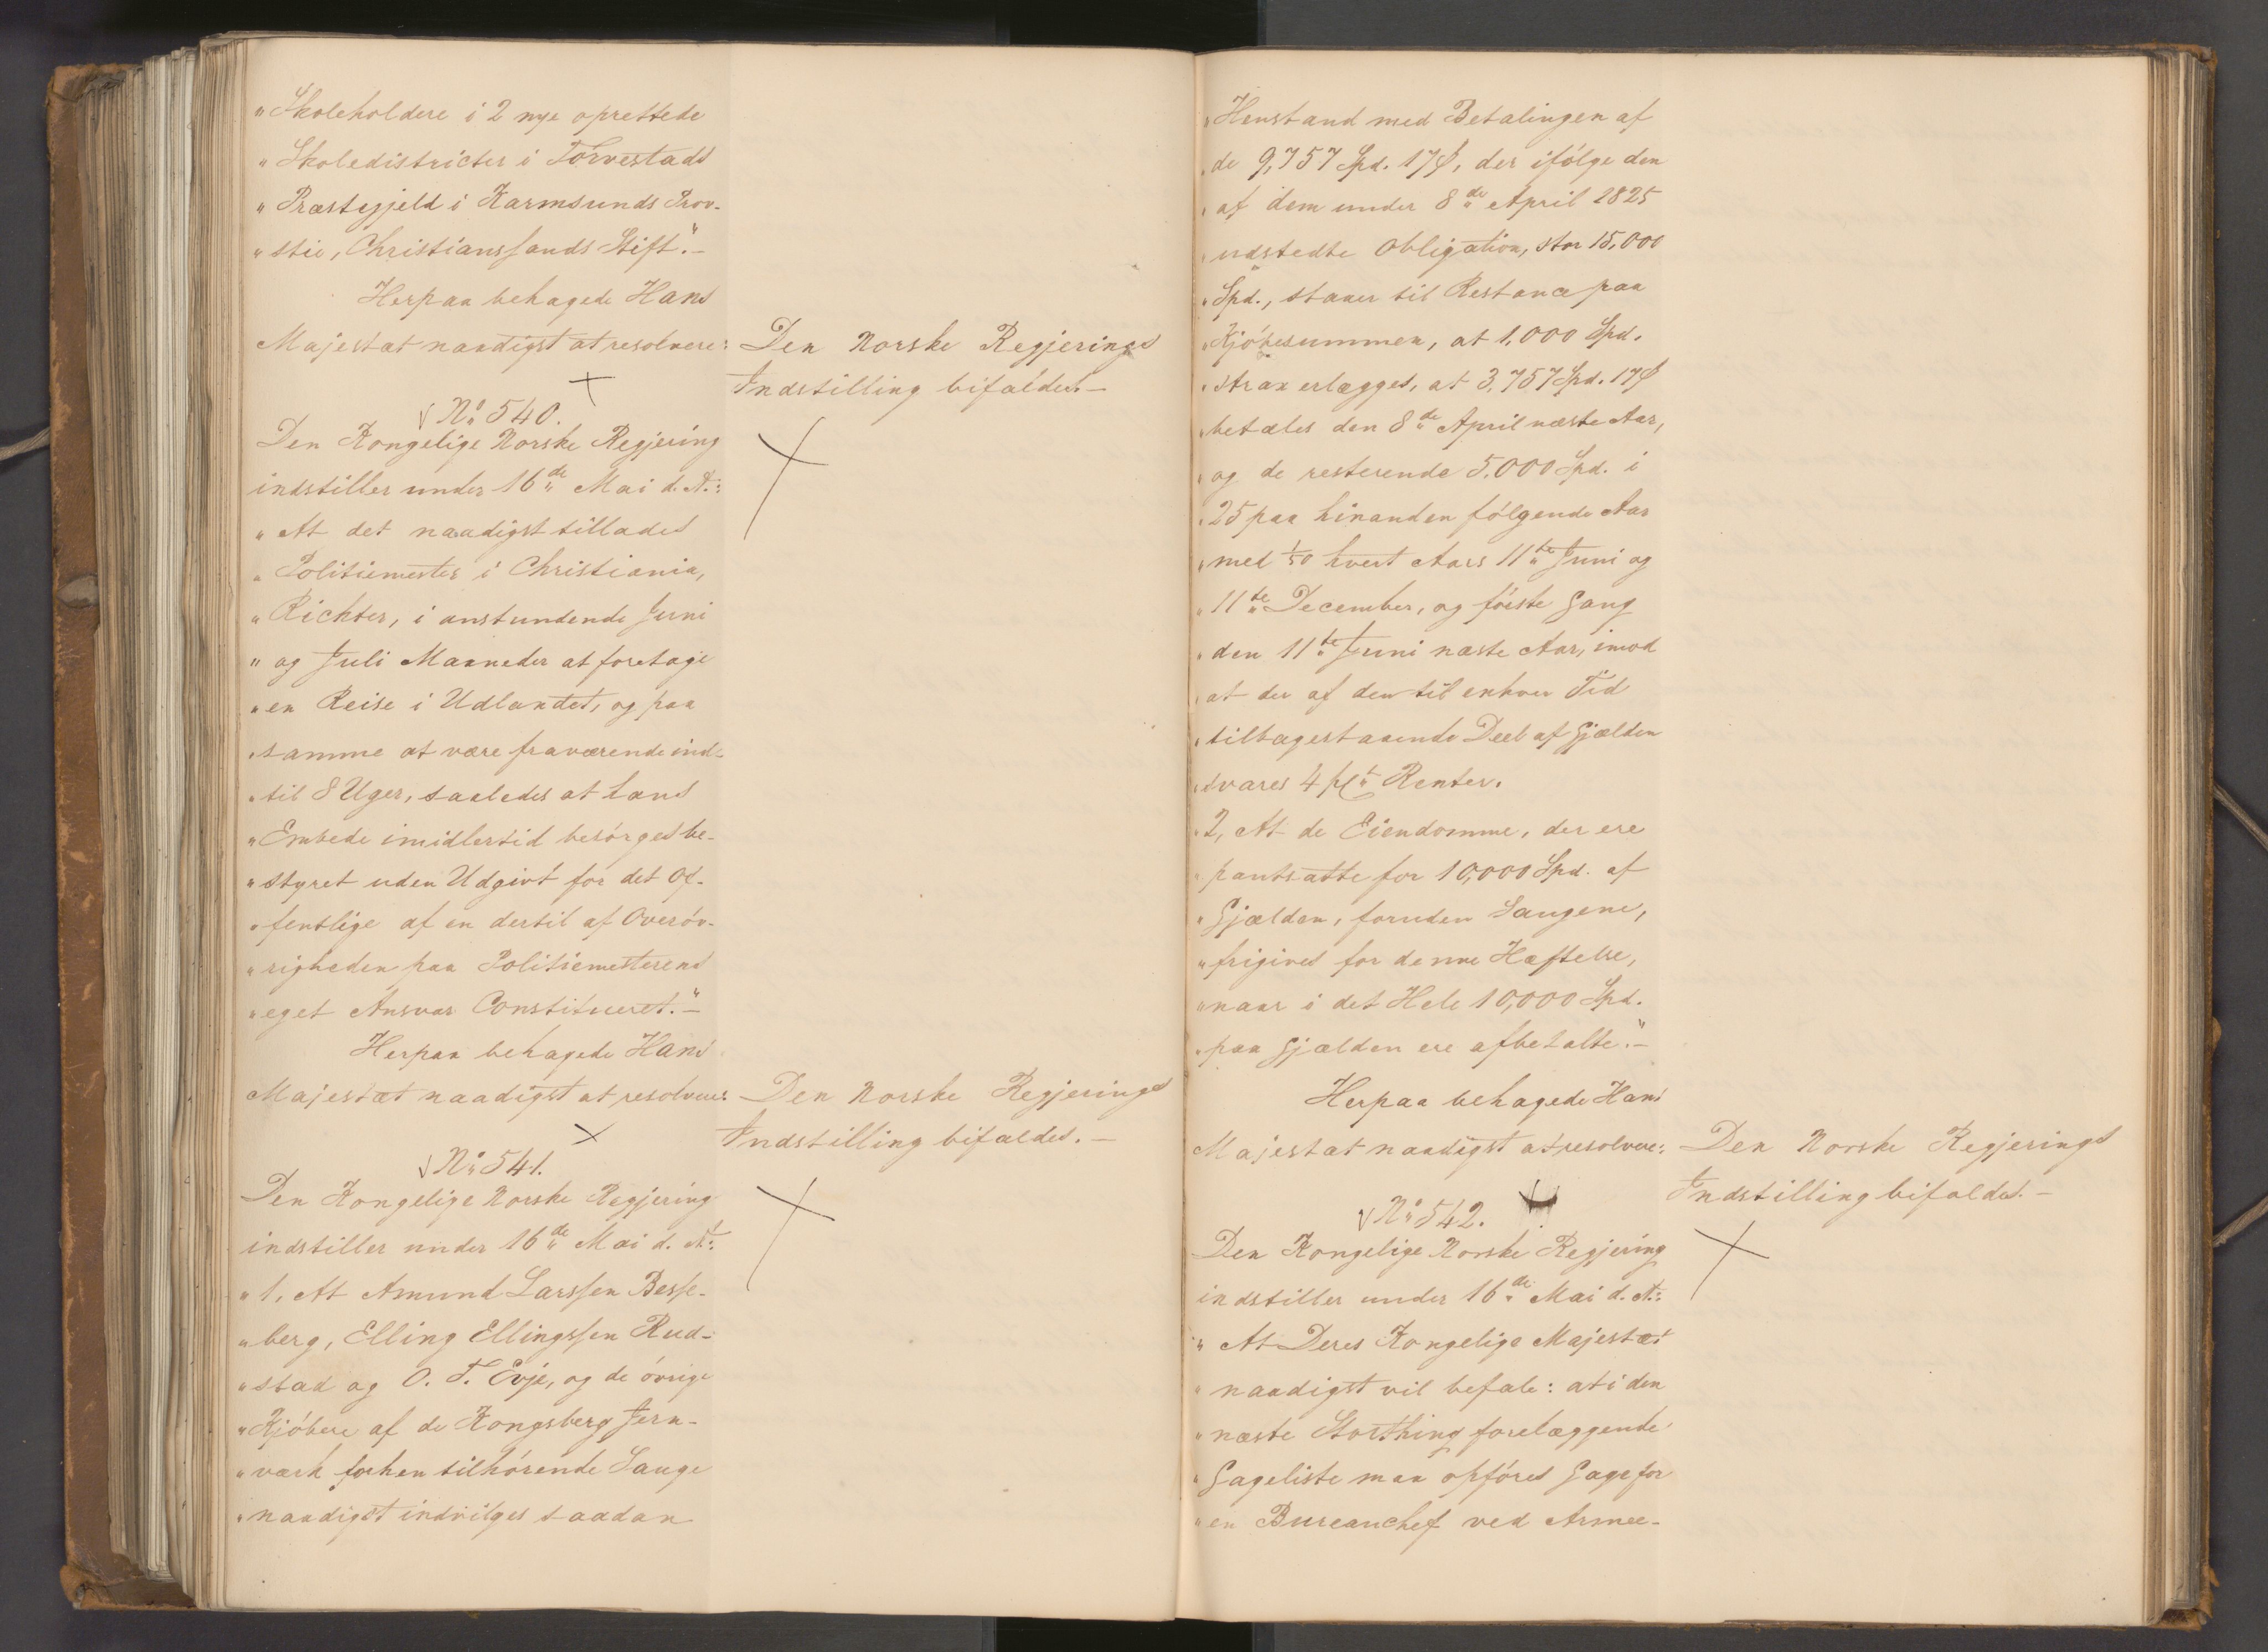 "Skoleholdere i 2 nye oprettede
"Skoledistricter i Torvestads
"Præstegjeld i Karmsunds Prov-
"stie, Christianssands Stift."-
Herpaa behagede Hans
Majestæt naadigst at resolvere:
Den Norske Regjerings
Indstilling bifaldes.-
No 540.
Den Kongelige Norske Regjering
indstiller under 16de Mai d. A.:
"At det naadigst tillades
"Politiemester i Christiania,
"Richter, i anstundende Juni
"og Juli Maaneder at foretage
"en Reise i Udlandet, og paa
"samme at være fraværende ind-
"til 8 Uger, saaledes at hans
"Embede imidlertid besörges be-
"styret uden Udgivt for det Of-
"fentlige af en dertil af Overöv-
"righeden paa Politiemesterens
"eget Ansvar Constitueret."-
Herpaa behagede Hans
Majestæt naadigst at resolvere:
Den Norske Regjerings
Indstilling bifaldes.-
No 541.
Den Kongelige Norske Regjering
indstiller under 16de Mai d. A.:
"1, At Amund Larssen Besse-
"berg, Elling Ellingssen Rud-
"stad og O. T. Evje, og de övrige
"Kjöbere af de Kongsberg Jern-
"værk forhen tilhörende Sauge
"naadigst indvilges saadan
"Henstand med Betalingen af
"de 9,757 Spd. 17ß, der ifölge den
"af dem under 8de April 1825
"udstedte Obligation, stor 15,000
"Spd., staaer til Restance paa
"Kjöbesummen, at 1,000 Spd.
"strax erlægges, at 3,757 Spd. 17ß
"betales den 8de April næste Aar,
"og de resterende 5,000 Spd. i
"25 paa hinanden fölgende Aar
"med 1/50 hvert Aars 11te Juni og
"11te December, og förste Gang
"den 11te Juni næste Aar, imod
"at der af den til enhver Tid
"tilbagestaaende Deel af Gjælden
"svares 4 pCt Renter.
"2, At de Eiendomme, der ere
"pantsatte for 10,000 Spd. af
"Gjælden, foruden Saugene,
"frigives for denne Hæftelse,
"naar i det Hele 10,000 Spd.
"paa Gjælden ere afbetalte."-
Herpaa behagede Hans
Majestæt naadigst at resolvere:
Den Norske Regjerings
Indstilling bifaldes.-
No 542.
Den Kongelige Norske Regjering
indstiller under 16de Mai d. A.:
"At Deres Kongelige Majestæt
"naadigst vil befale: at i den
"næste Storthing forelæggende
"Gageliste maa opföres Gage for
"en Bureauchef ved Armee-